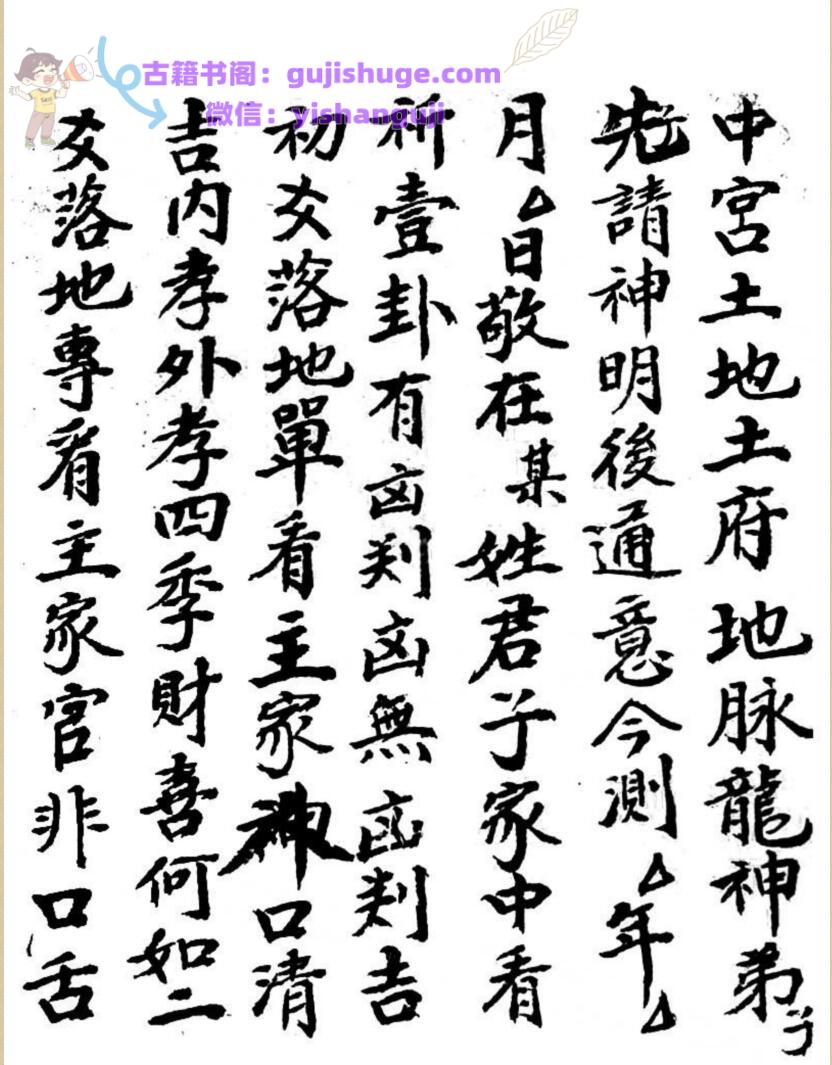 古籍书阁：gujishuge.com
微信：yishanguji
中宮土地土府地脉龍神弟子
先請神明後通意今測△年△
月△日敬在某姓君子家中看
祈壹卦有凶判凶無凶判吉
初爻落地單看主家神口清
吉内孝外孝四季財喜何如二
爻落地專看主家官非口舌